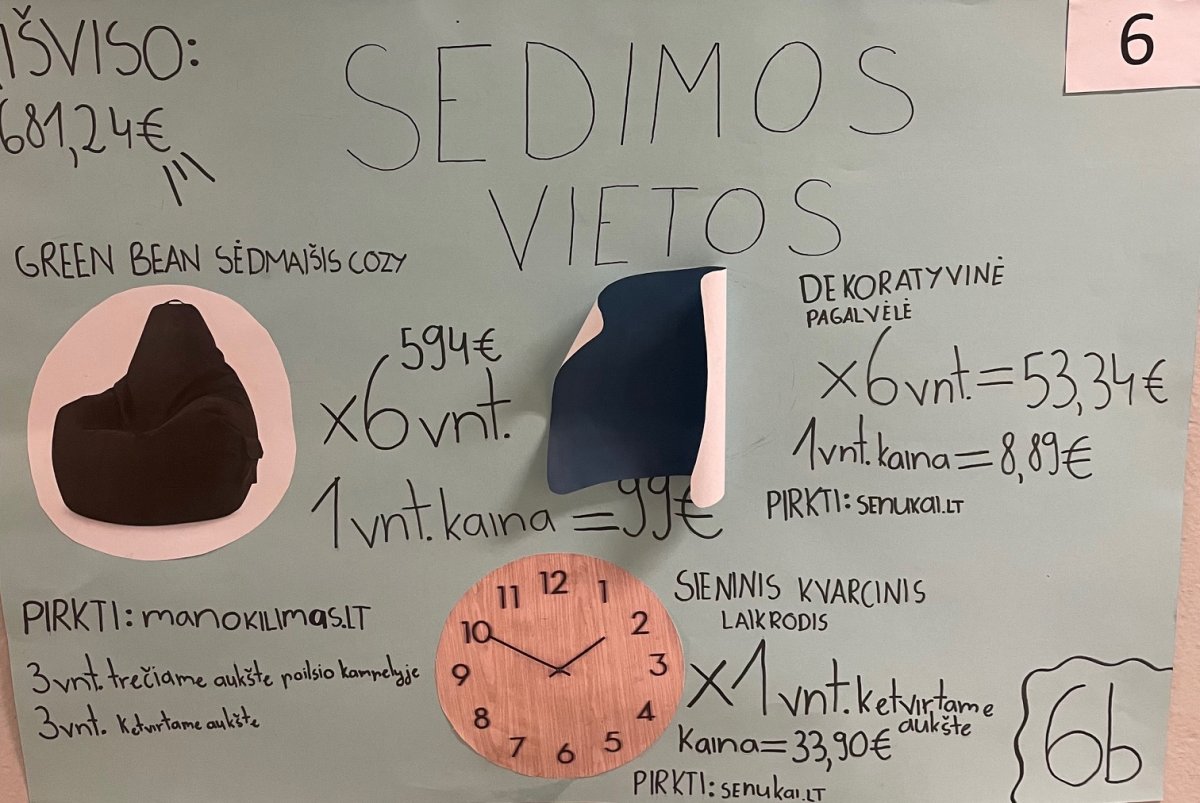 IŠVISO:
681,24€
SĖDIMOS
VIETOS
6
GREEN BEAN SĖDMAIŠIS COZY
594€
x6 vnt.
1 vnt. kaina = 99€
PIRKTI: manokilimas.LT
3 vnt. trečiame aukšte poilsio kampelyje
3 vnt. ketvirtame aukšte
DEKORATYVINĖ
PAGALVĖLĖ
x6 vnt. = 53,34€
1 vnt. kaina = 8,89€
PIRKTI: senukai.LT
11 12 1
10 2
9 3
8 4
7 6 5
SIENINIS KVARCINIS
LAIKRODIS
x1 vnt. ketvirtame
aukšte
Kaina = 33,90€
PIRKTI: senukai.LT
6b